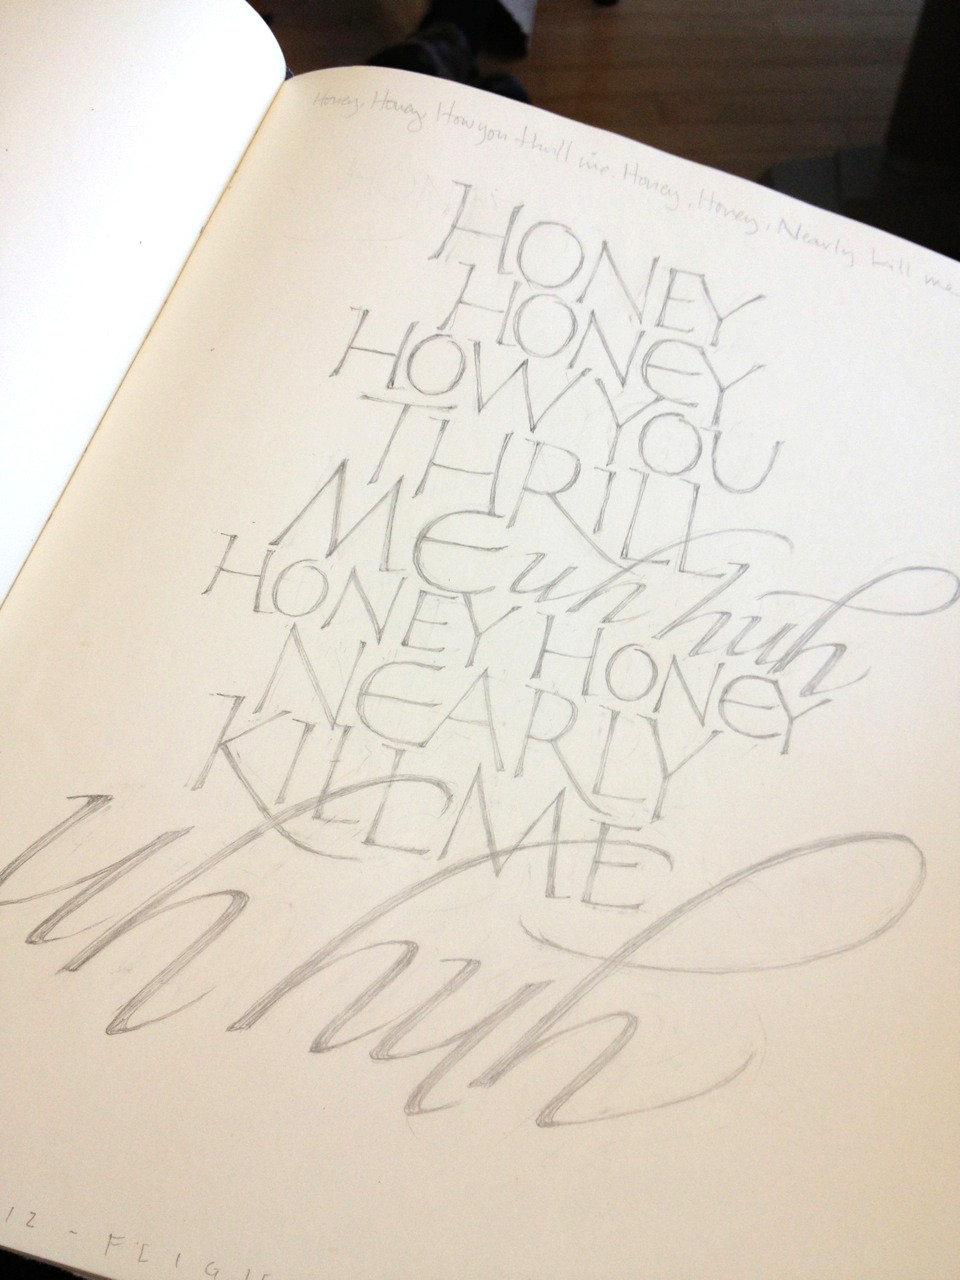 Honey, Honey, How you thrill me. Honey, Honey, Nearly kill me
HONEY
HONEY
HOW YOU
THRILL
ME uh huh
HONEY HONEY
NEARLY
KILL ME
uh huh
12 - FLIG